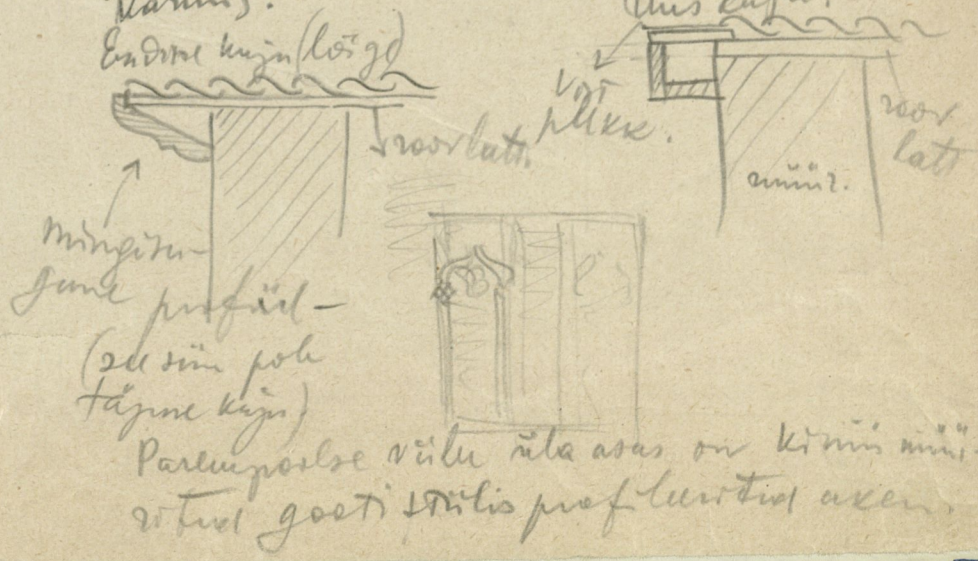 Endine kuju (lõige)
roovlatt.
Mingisu-
gune profiil –
(see siin pole
täpne kuju)
Uus kuju.
pikk.
roov
latt
müür.
Parempoolse viilu üla osas on kinni müü-
ritud gooti stiilis profileeritud aken.